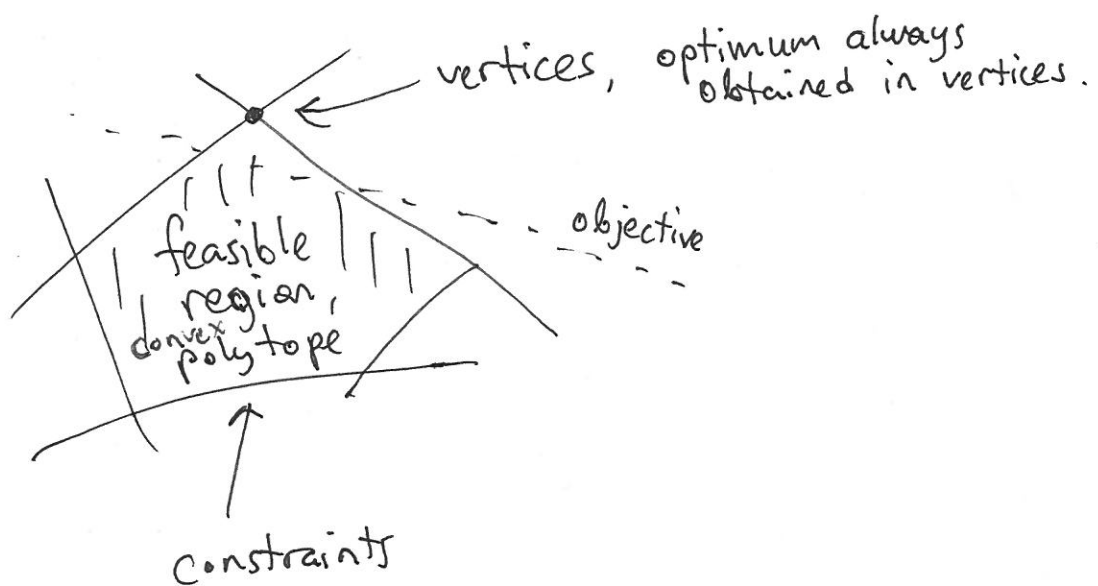 vertices, optimum always
obtained in vertices.
objective
feasible
region,
convex
polytope
constraints